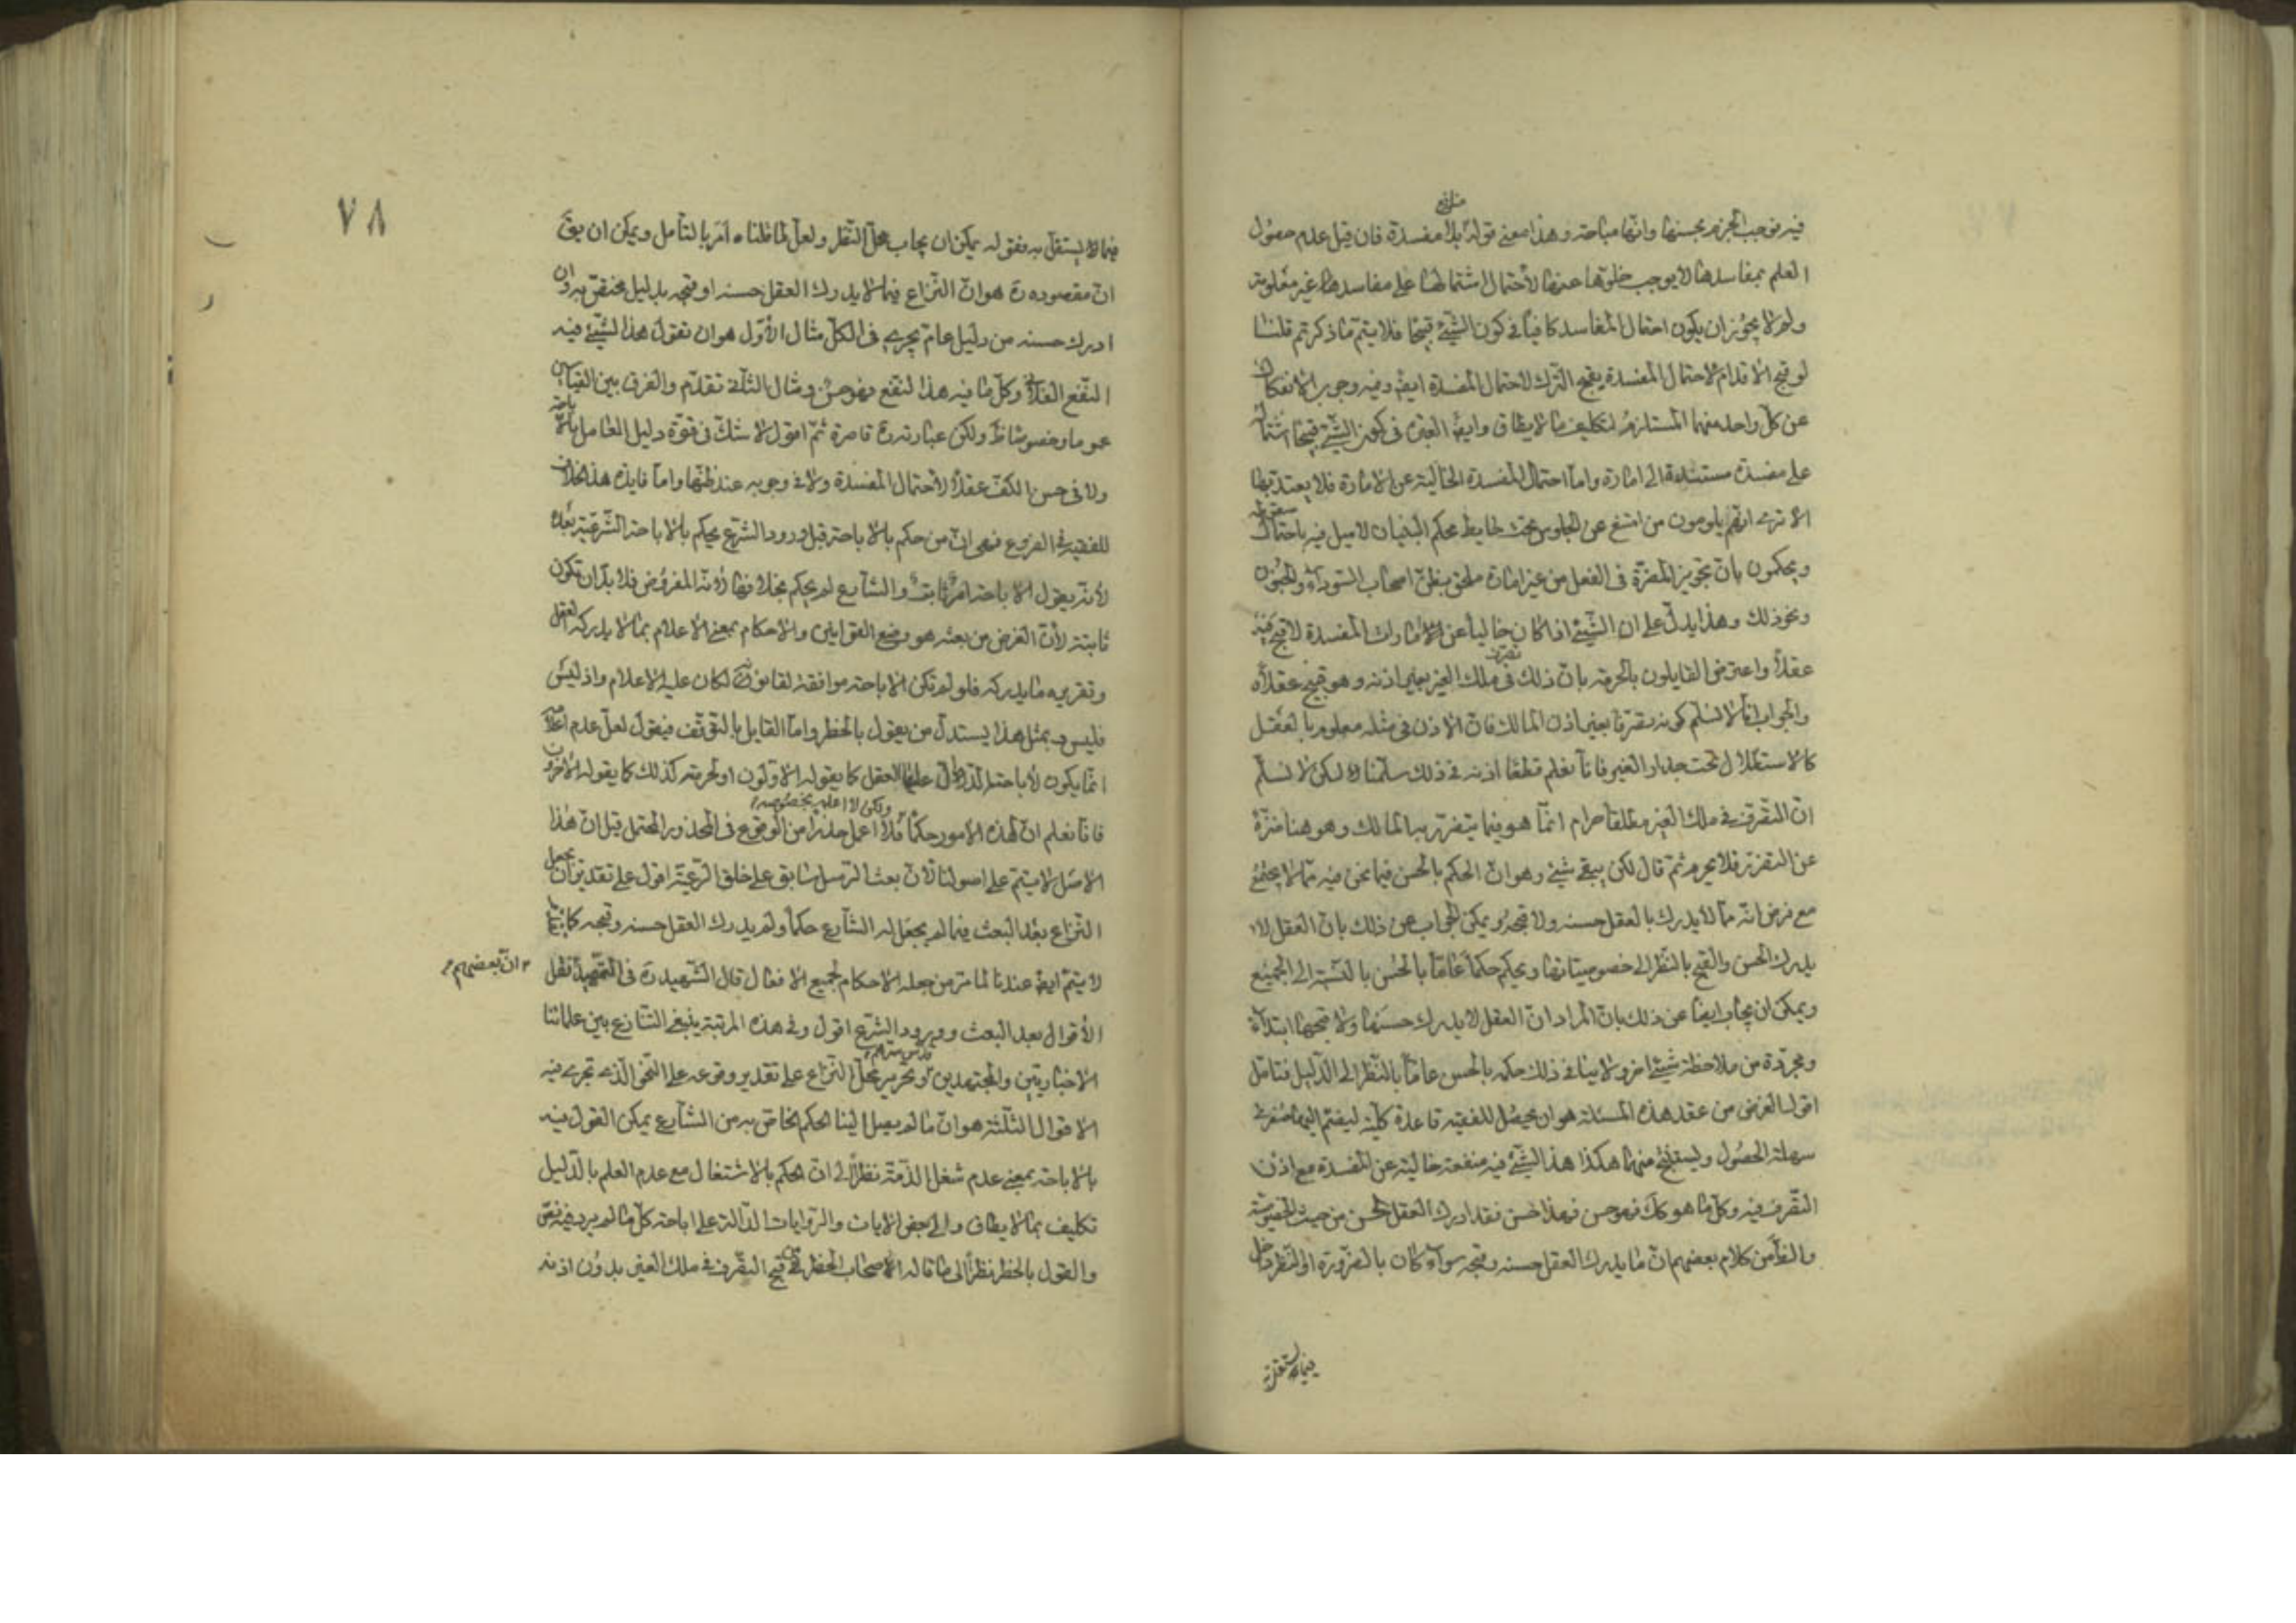 فيه فوجب الجزم بحسنها وانها مباحة وهذا معنى قوله بلا مفسدة فان قيل عدم حصول
العلم بمفاسدها لا يوجب خلوها عنها لاحتمال اشتمالها على مفاسد غير معلومة
ولم لا يجوز ان يكون احتمال المفاسد كافيا في كون الشيء قبيحا فلا يتم ما ذكرتم قلنا
لو قبح الاقدام لاحتمال المفسدة يقبح الترك لاحتمال المفسدة ايضا وفيه وجوب الانفكاك
عن كل واحد منهما المستلزم لتكليف ما لا يطاق وايضا العبرة في كون الشيء قبيحا اشتماله
على مفسدة مستندة الى امارة واما احتمال المفسدة الخالية عن الامارة فلا يعتد بها
الا ترى انهم يلومون من امتنع عن الجلوس تحت حايط محكم البنيان لا ميل فيه باحتمال سقوطه
ويحكمون بان تجويز المضرة في الفعل من غير امارة ملحق بظن اصحاب السوداء والجنون
ونحو ذلك وهذا يدل على ان الشيء اذا كان خاليا عن المفسدة لا قبح فيه
عقلا واعترض القايلون بالحرمة بان ذلك تصرف في ملك الغير بغير اذنه وهو قبيح عقلا
والجواب انا لا نسلم كونه تصرفا بغير اذن المالك فان الاذن في مثله معلوم بالعقل
كالاستظلال تحت جدار الغير فانا نعلم قطعا اذنه في ذلك سلمنا لكن لا نسلم
ان التصرف في ملك الغير مطلقا حرام انما هو فيما يتضرر به المالك وهو هنا منزه
عن التضرر فلا يحرم ثم قال لكن يبقى شيء وهو ان الحكم بالحسن فيما نحن فيه مما لا يجتمع
مع فرض انه مما لا يدرك بالعقل حسنه ولا قبحه ويمكن الجواب عن ذلك بان العقل لا
يدرك الحسن والقبح بالنظر الى خصوصياتها ويحكم حكما عاما بالحسن بالنسبة الى الجميع
ويمكن ان يجاب ايضا عن ذلك بان المراد ان العقل لا يدرك حسنها ولا قبحها ابتداء
ومجردة من ملاحظة شيء اخر ولا ينافي ذلك حكمه بالحسن عاما بالنظر الى الدليل فتامل
اقول الغرض من عقد هذه المسئلة هو ان يحصل للفقيه قاعدة كلية ليضم اليها صغرى
سهلة الحصول ويستنتج منها هكذا هذا الشيء فيه منفعة خالية عن المفسدة مع اذن
التصرف فيه وكل ما هو كك فهو حسن فهذا حسن فقد ادرك العقل الحسن من حيث الخصوصية
والظ من كلام بعضهم ان ما يدرك العقل حسنه وقبحه سواء كان بالضرورة او النظر داخل
فيما يستقل به
٧٨
فيما لا يستقل به فقوله يمكن ان يجاب محل النظر ولعل لما قلناه امر بالتامل ويمكن ان يق
ان مقصوده ره هو ان النزاع فيما لا يدرك العقل حسنه او قبحه بدليل مختص به وان
ادرك حسنه من دليل عام يجري في الكل مثال الاول هو ان نقول هذا الشيء فيه
النفع الفلاني وكل ما فيه هذا النفع فهو حسن ومثال الثاني تقدم والفرق بين القياسين
عموما وخصوصا ظ ولكن عبارته ره قاصرة ثم اقول لا شك في قوة دليل القائل بالاباحة
ولا في حسن الكف عقلا لاحتمال المفسدة ولا في وجوبه عند ظنها واما فايدة هذا الخلاف
للفقيه في الفروع فهى ان من حكم بالاباحة قبل ورود الشرع يحكم بالاباحة الشرعية بعده
لانه يقول الاباحة امر ثابت والشارع لم يحكم بخلافها لانه المفروض فلا بد ان تكون
ثابتة لان الغرض من بعثه هو وضع القوانين والاحكام بمعنى الاعلام بما لا يدركه العقل
وتقريره ما يدركه فلو لم تكن الاباحة موافقة لقانونه لكان عليه الاعلام واذ ليس
فليس وبمثل هذا يستدل من يقول بالحظر واما القايل بالتوقف فيقول لعل عدم اعلامه
انما يكون لاباحته الدال عليها العقل كما يقوله الاولون او لحرمته كذلك كما يقوله الاخرون
فانا نعلم ان لهذه الامور حكما ولكن لا اعلمه بخصوصه فلا اعمل حذرا من الوقوع في المحذور المحتمل قيل ان هذا
الاصل لا يتم على اصولنا لان بعث الرسل سابق على خلق الرعية اقول على تقدير ان يجعل
النزاع بعد البعث فيما لم يجعل له الشارع حكما ولم يدرك العقل حسنه وقبحه
لا يتم ايضا عندنا لما مر من جعله الاحكام لجميع الافعال قال الشهيد ره في التمهيد ان بعضهم نقل
الاقوال بعد البعث وورود الشرع اقول وفي هذه المرتبة ينبغي التنازع بين علمائنا
الاخباريين والمجتهدين قدس سرهم وتحرير محل النزاع على تقدير وقوعه على النحو الذي تجري فيه
الاقوال الثلثة هو ان ما لم يصل الينا الحكم الخاص به من الشارع يمكن القول فيه
بالاباحة بمعنى عدم شغل الذمة نظرا الى ان الحكم بالاشتغال مع عدم العلم بالدليل
تكليف بما لا يطاق والى بعض الايات والروايات الدالة على اباحة كل ما لم يرد فيه نص
والقول بالحظر نظرا الى ما قاله اصحاب الحظر من قبح التصرف في ملك الغير بدون اذنه